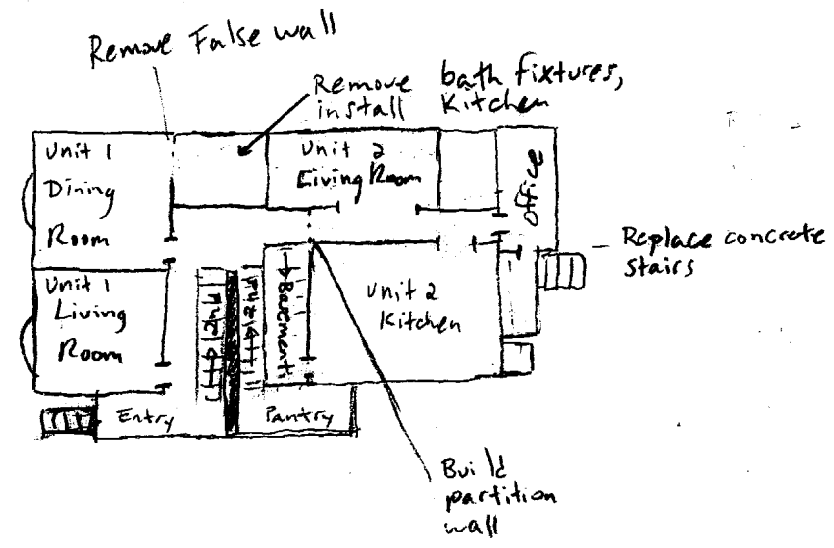 Remove False wall
Remove bath fixtures,
install Kitchen
Unit 1
Dining
Room
Unit 2
Living Room
office
Replace concrete
stairs
Unit 1
Living
Room
Basement
Unit 2
Kitchen
Entry
Pantry
Build
partition
wall